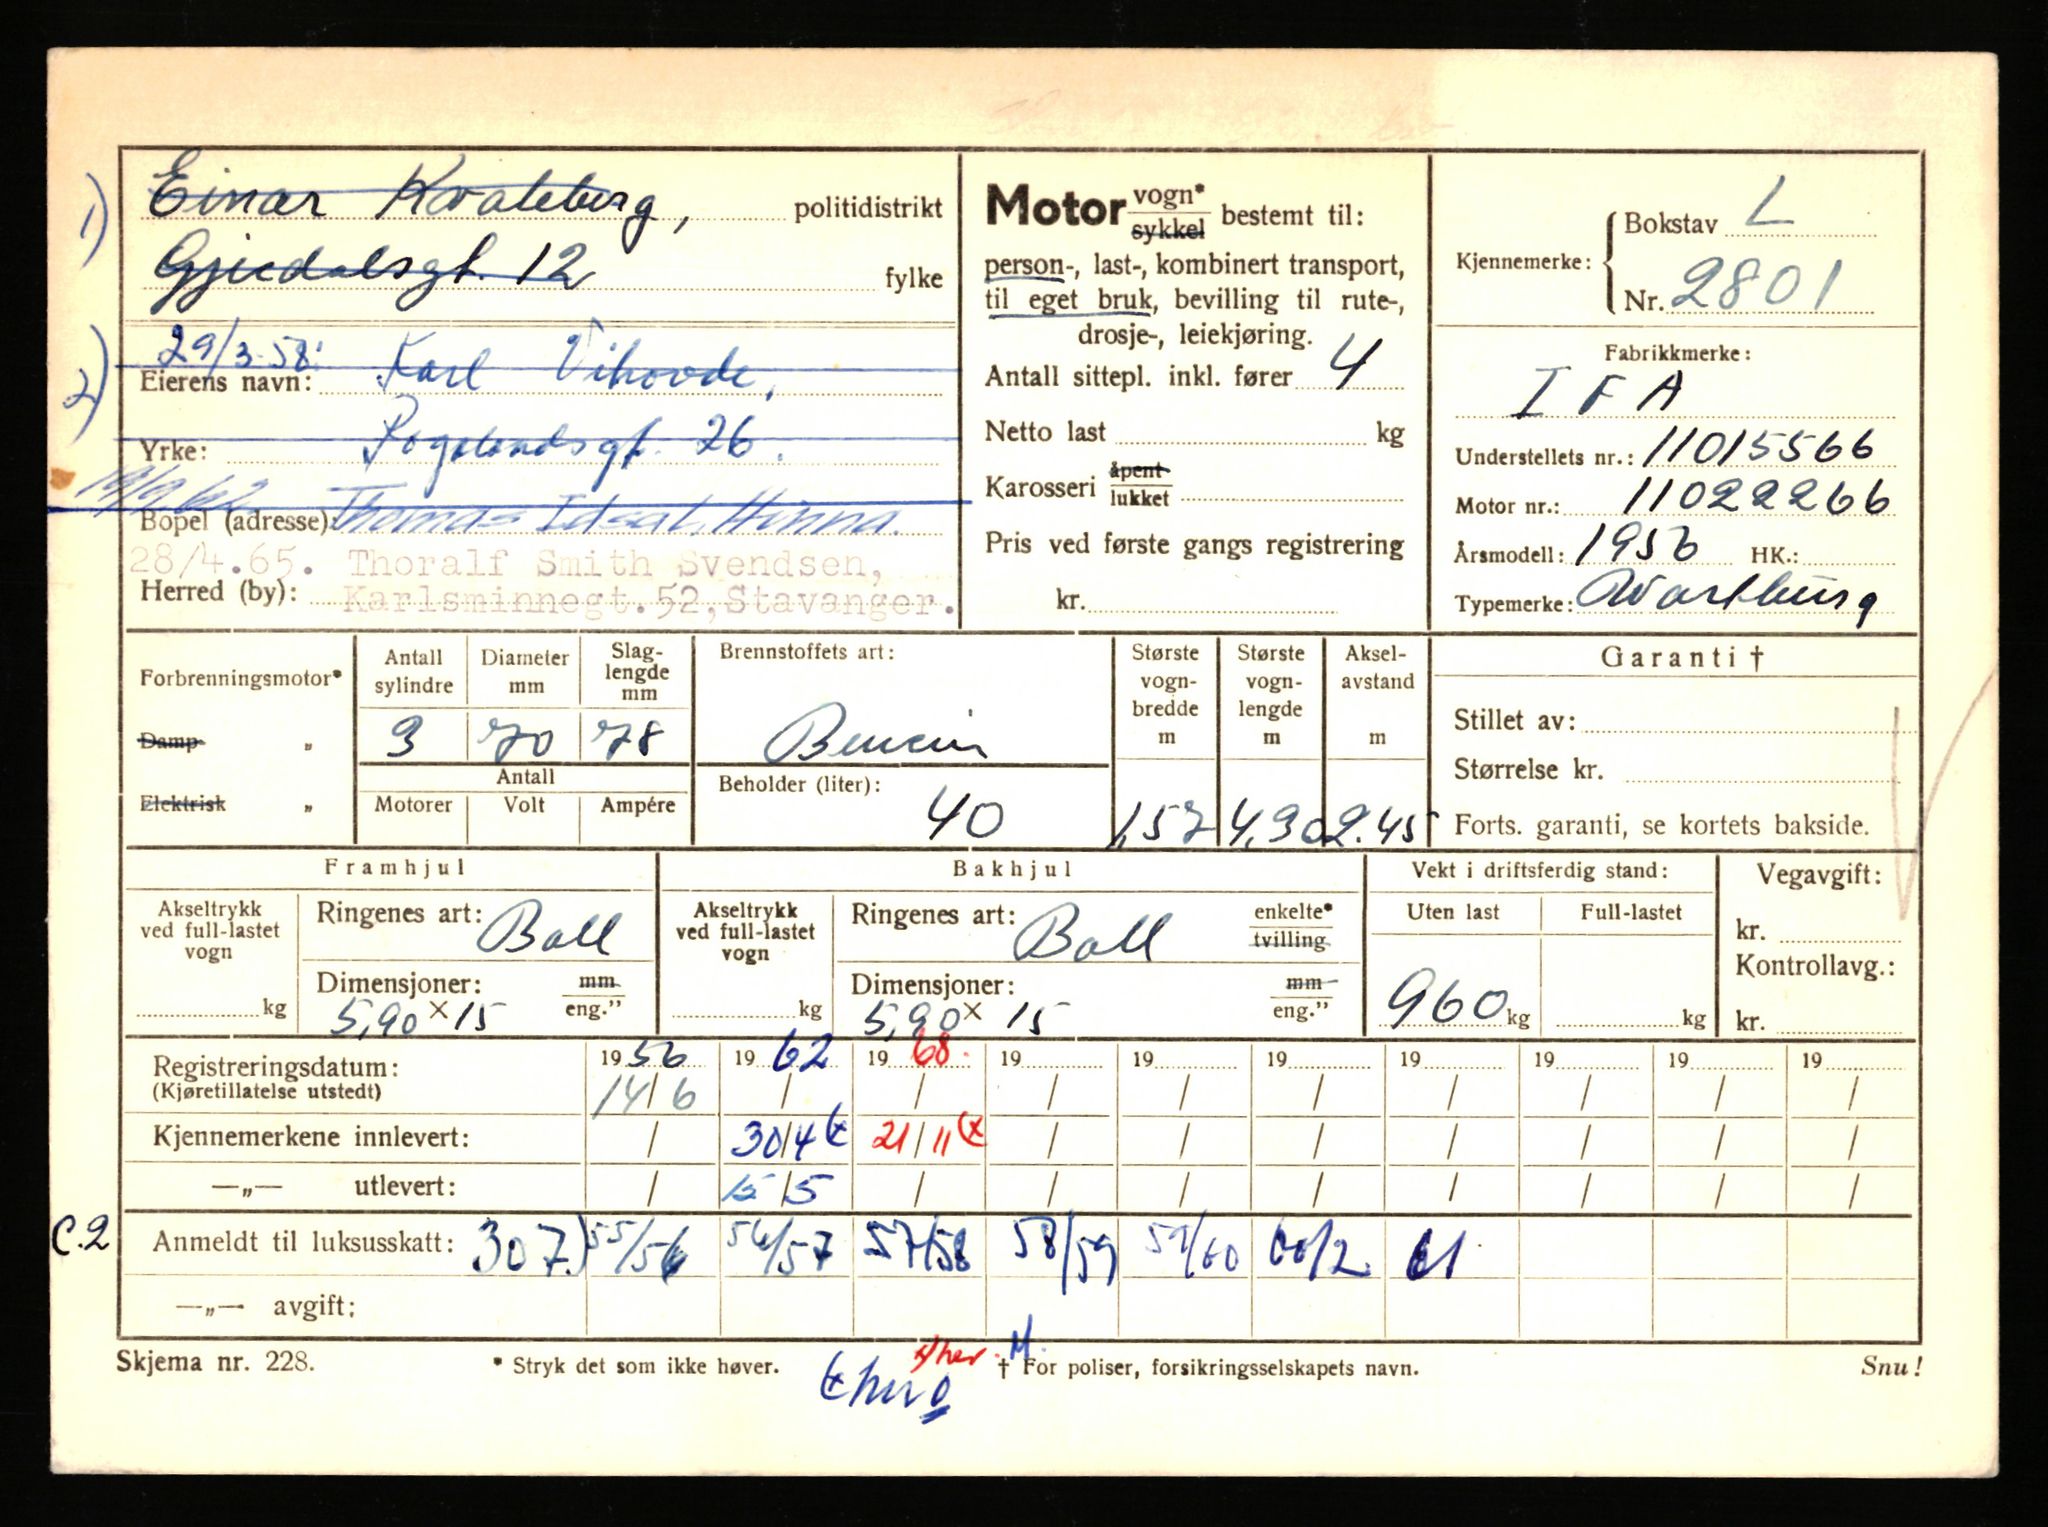 1) Einar Kvaleberg, politidistrikt
Gjesdalsgt. 12 fylke
29/3-58:
2) Eierens navn: Karl Vihovde,
Yrke: Rogalandsgt. 26.
19/9 62
Bopel (adresse): Thomas Idsal, Hinna.
28/4.65. Thoralf Smith Svendsen,
Herred (by): Karlsminnegt.52, Stavanger.
Motor vogn* sykkel bestemt til:
person-, last-, kombinert transport,
til eget bruk, bevilling til rute-,
drosje-, leiekjøring.
Antall sittepl. inkl. fører 4
Netto last kg
Karosseri åpent lukket
Pris ved første gangs registrering
kr.
Kjennemerke: Bokstav L
Nr. 2801
Fabrikkmerke:
IFA
Understellets nr.: 11015566
Motor nr.: 11022266
Årsmodell: 1956 HK.:
Typemerke: Wartburg
Forbrenningsmotor*
Damp „
Elektrisk „
Antall sylindre 3
Diameter mm 70
Slag-lengde mm 78
Antall
Motorer Volt Ampére
Brennstoffets art:
Bensin
Beholder (liter):
40
Største vogn-bredde m 1,57
Største vogn-lengde m 4,30
Aksel-avstand m 2.45
Garanti †
Stillet av:
Størrelse kr.
Forts. garanti, se kortets bakside.
Framhjul
Akseltrykk ved full-lastet vogn kg
Ringenes art: Ball
Dimensjoner: mm eng.”
5,90 x 15
Bakhjul
Akseltrykk ved full-lastet vogn kg
Ringenes art: Ball enkelte* tvilling
Dimensjoner: mm eng.”
5,90 x 15
Vekt i driftsferdig stand:
Uten last Full-lastet
960 kg kg
Vegavgift:
kr.
Kontrollavg.:
kr.
Registreringsdatum: 1956 1962 1968. 19 19 19 19 19 19 19
(Kjøretillatelse utstedt) 14/6 / / / / / / / / /
Kjennemerkene innlevert: / 30/4 (x 21/11 (x / / / / / / /
—„— utlevert: / 15/5 / / / / / / / /
C.2 Anmeldt til luksusskatt: 307.) 55/56 56/57 57/58 58/59 59/60 60/2 61
—„— avgift:
Skjema nr. 228. * Stryk det som ikke høver. † For poliser, forsikringsselskapets navn. Snu!